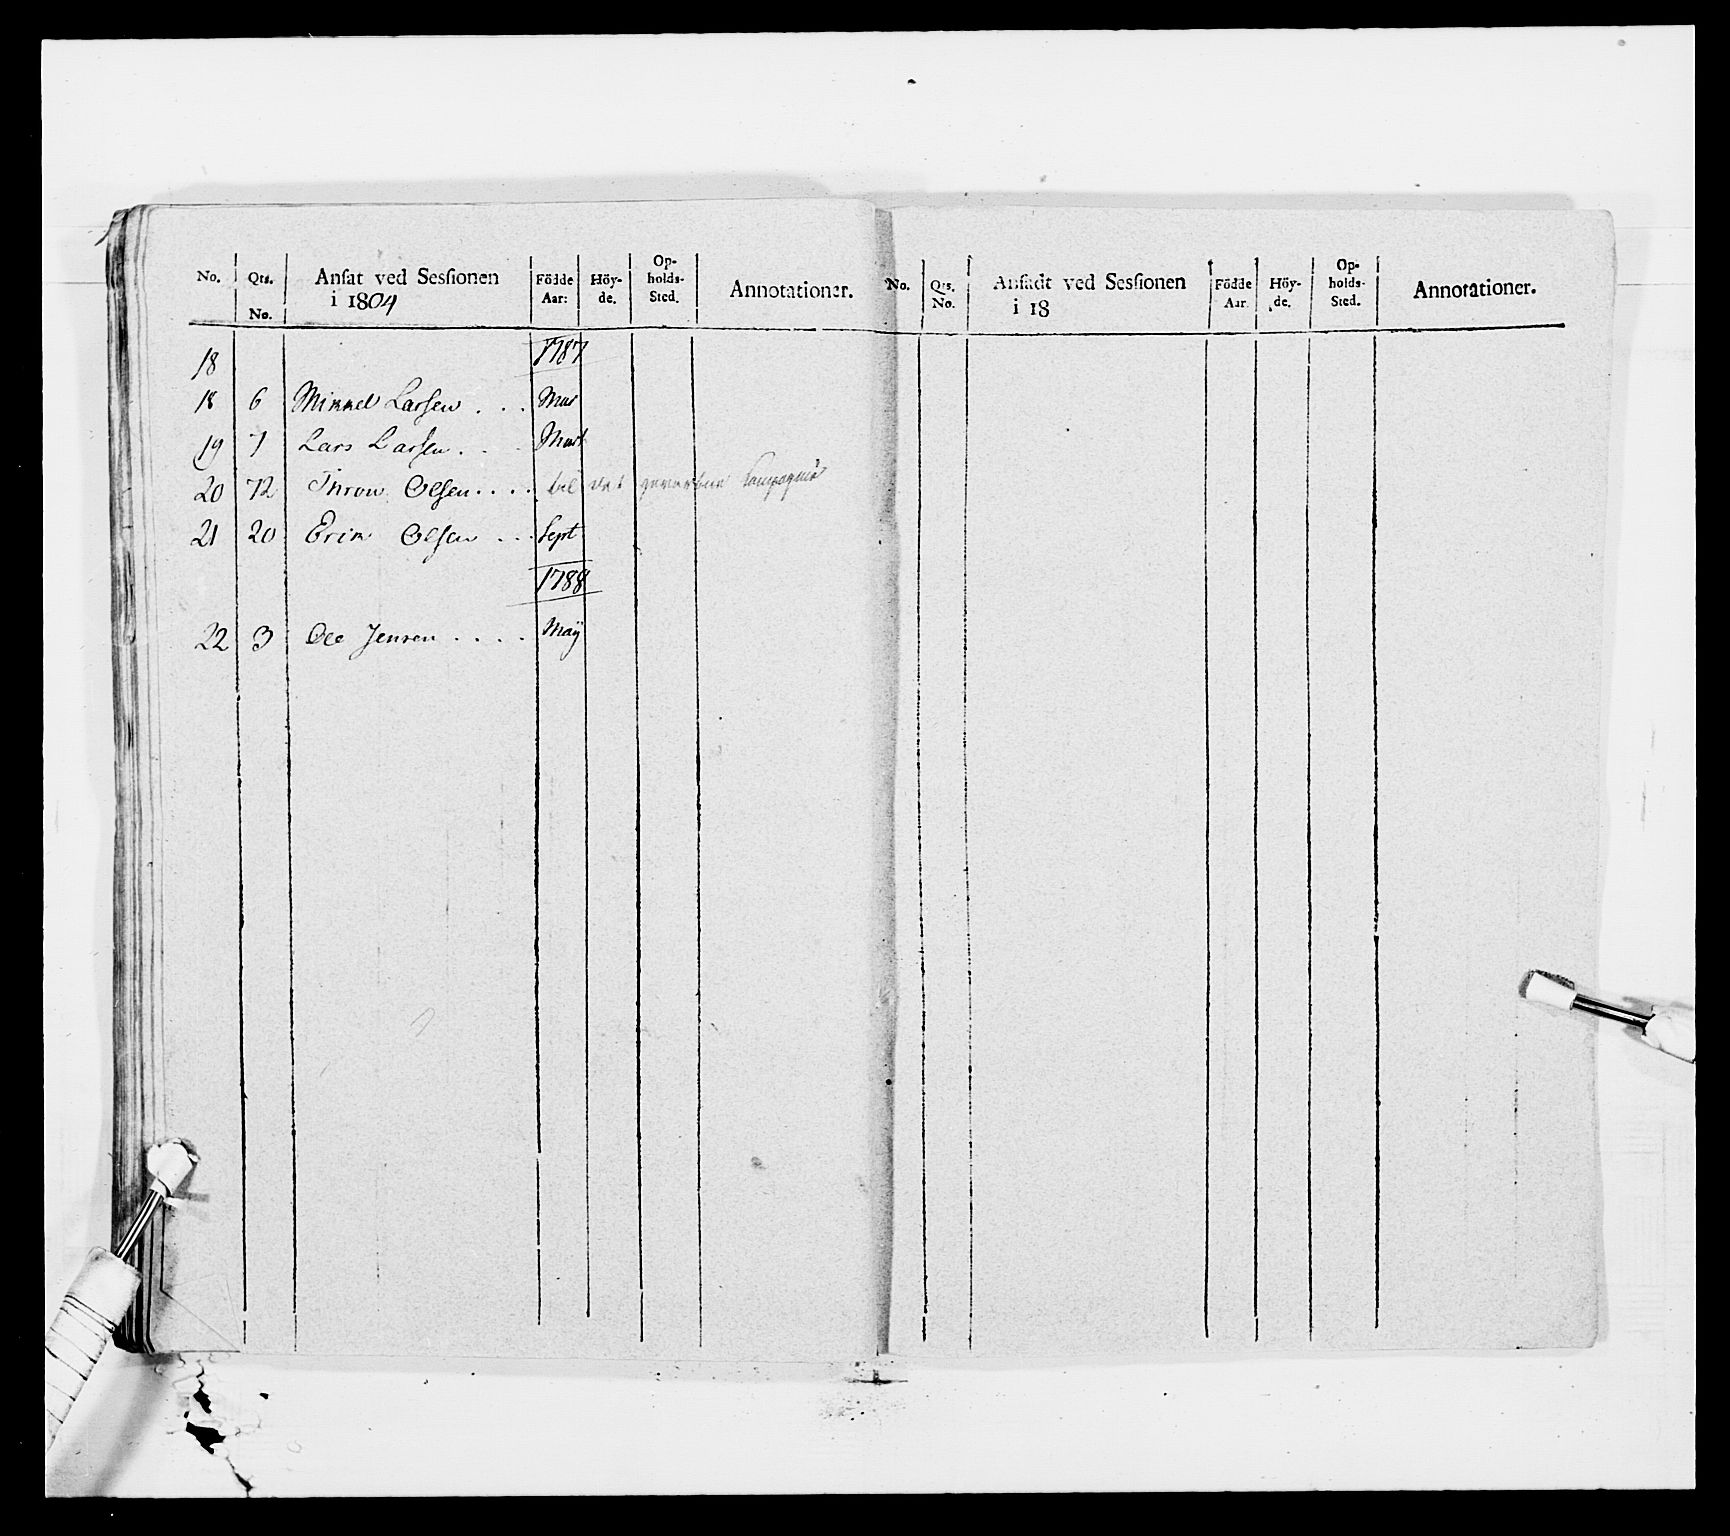 No. Qts. No. Ansat ved Sessionen i 1804 Födde Aar: Höy-de. Op-holds-Sted. Annotationer.
18 1787
18 6 Mikkel Larsen . . .
19 7 Lars Larsen . . . Mart
20 72 Thron Olsen . . . . til det gevorbne Compagnie
21 20 Erik Olsen . . . Sept
1788
22 3 Ole Jensen . . . . Maÿ
No. Qts. No. Ansadt ved Sessionen i 18 Födde Aar. Höy-de. Op-holds-Sted. Annotationer.